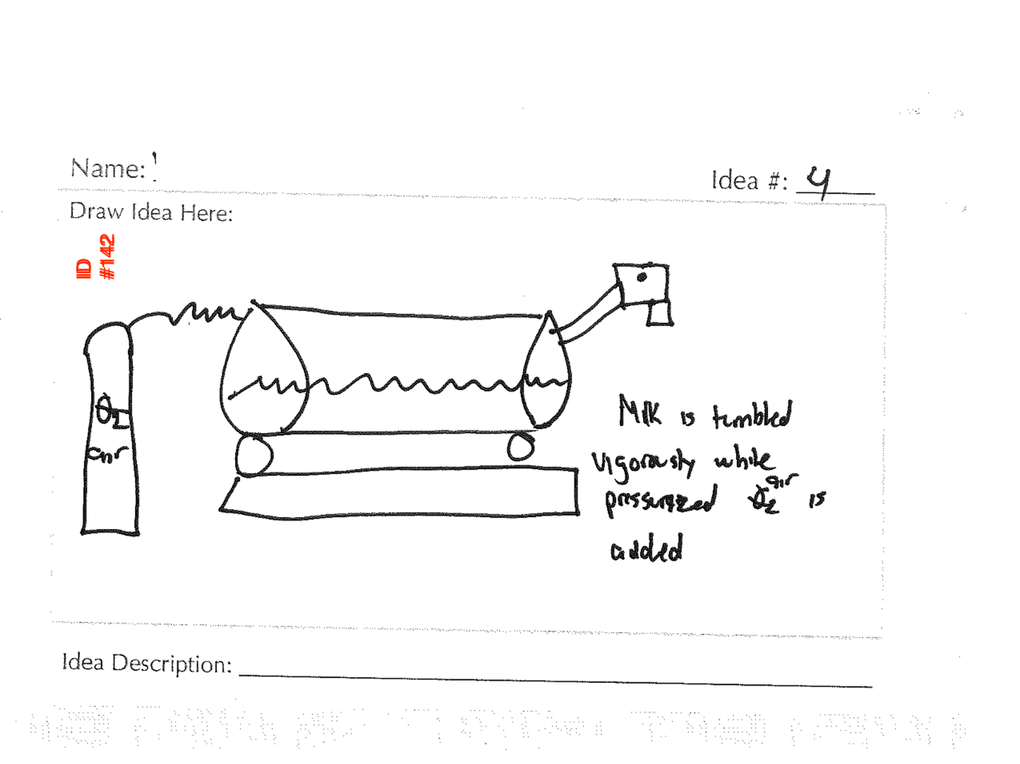 Name:
Idea #: 4
Draw Idea Here:
IID
#142
O2
air
Milk is tumbled
vigorously while
air
pressurized O2 is
added
Idea Description: